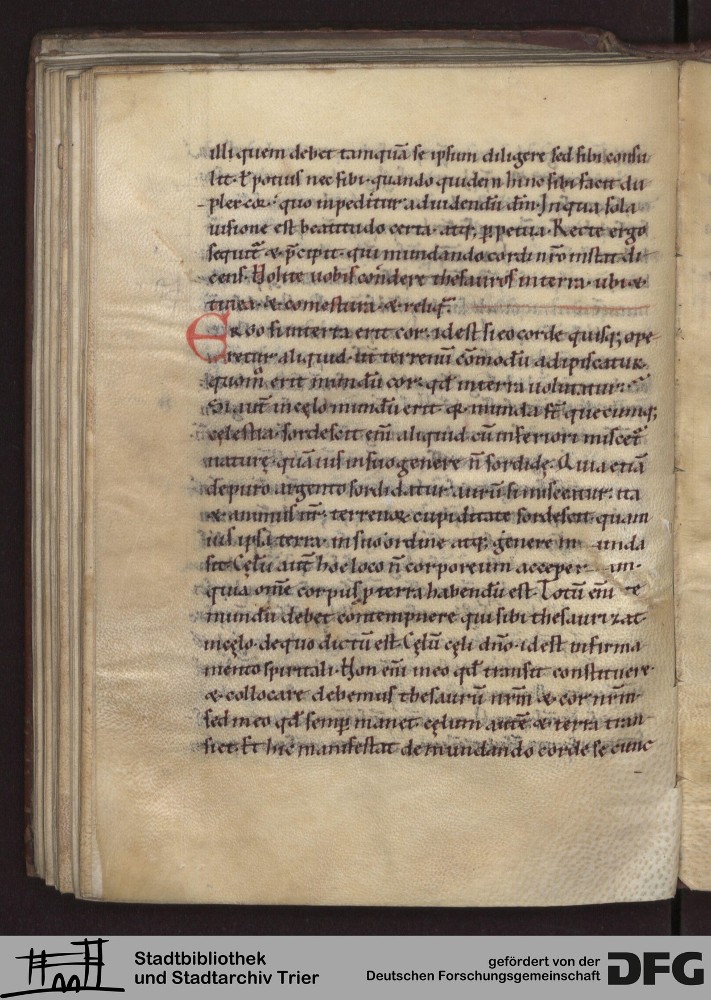 illi quem debet tamquā se ipsum diligere sed sibi consu
lit · ł potius nec sibi · quando quidem hinc sibi facit du
plex cor · quo inpeditur ad uidendū dm̄ · In qua sola
uisione est beatitudo certa · atq; ꝑpetua · Recte ergo
sequit̄ & p̄cipit · qui mundando cordi nr̄o instat di
cens · Nolite uobis condere thesauros in terra · ubi &
tinea & comestura & reliq̄ ·
Ergo si in terra erit cor · id est si eo corde quisq; ope
retur aliquid · ut terrenū cōmodū adipiscatur
quom̄ erit mundū cor · qd̄ in terra uolutatur ·
Si aut̄ in cęlo mundū erit · q̄ munda st̄ quecumq;
cęlestia · sordescit em̄ aliquid cū inferiori miscet̄
naturę · quāuis in suo genere n̄ sordidę · Quia etiā
de puro argento sordidatur aurū si misceatur · ita
& animus nr̄ · terrenoꝝ cupiditate sordescit · quam
uis ipsa terra in suo ordine atq; genere m unda
sit · Cęlū aut̄ hoc loco n̄ corporeum acceper im ·
quia om̄e corpus ꝑ terra habendū est · Totū em̄ e
mundū debet contempnere qui sibi thesaurizat
in cęlo · de quo dictū est · Cęlū cęli dn̄o · id est in firma
mento spiritali · Non em̄ in eo qd̄ transit constituere
& collocare debemus thesaurū nr̄m & cor nr̄m ·
sed in eo qd̄ semꝑ manet · cęlum autē & terra tran
siet · Et hic manifestat de mundando corde se cunc
Stadtbibliothek
und Stadtarchiv Trier
gefördert von der
Deutschen Forschungsgemeinschaft
DFG